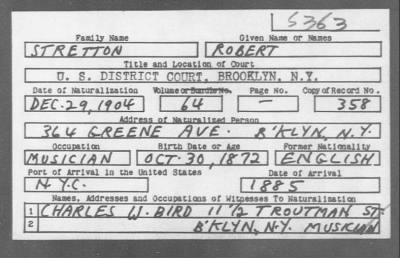 5363
Family Name Given Name or Names
STRETTON ROBERT
Title and Location of Court
U. S. DISTRICT COURT, BROOKLYN, N.Y.
Date of Naturalization Volume or Bundle No. Page No. Copy of Record No.
DEC. 29, 1904 64 — 358
Address of Naturalized Person
364 GREENE AVE. B'KLYN, N.Y.
Occupation Birth Date or Age Former Nationality
MUSICIAN OCT. 30, 1872 ENGLISH
Port of Arrival in the United States Date of Arrival
N.Y.C. 1885
Names, Addresses and Occupations of Witnesses To Naturalization
1 CHARLES W. BIRD 11 1/2 TROUTMAN ST.
2 B'KLYN, N.Y. MUSICIAN